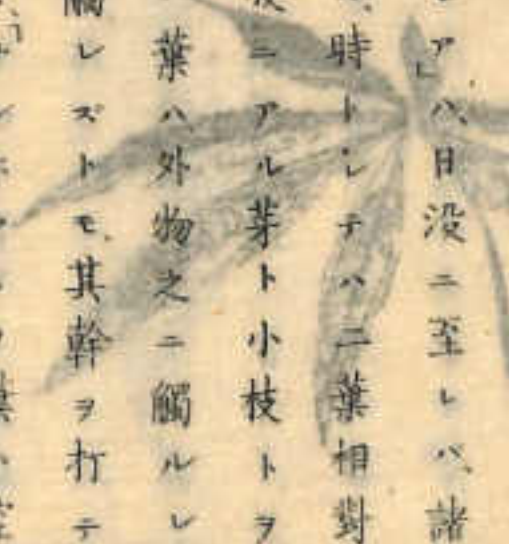 アハ、日没ニ至レバ、諸
時トシテハ二葉相對
ニアル芽ト小枝トヲ
葉ハ外物之ニ觸ルレ
觸レズトモ、其幹ヲ打テ